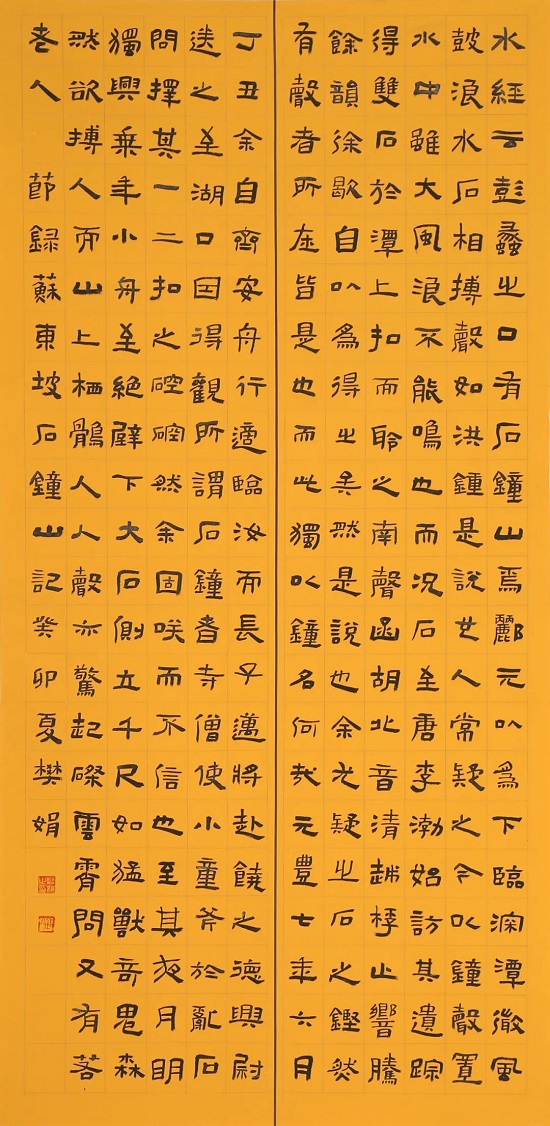 水經云彭蠡之口有石鐘山焉酈元以爲下臨深潭微風
鼓浪水石相搏聲如洪鍾是說世人常疑之今以鐘聲置
水中雖大風浪不能鳴也而況石至唐李渤始訪其遺踪
得雙石於潭上扣而聆之南聲函胡北音清越桴止響騰
餘韻徐歇自以爲得之矣然是說也余尤疑之石之鏗然
有聲者所在皆是也而此獨以鐘名何哉元豐七年六月
丁丑余自齊安舟行適臨汝而長子邁將赴饒之德興尉
送之至湖口因得觀所謂石鐘者寺僧使小童斧於亂石
問擇其一二扣之硿硿然余固咲而不信也至其夜月明
獨興乘年小舟至絕壁下大石側立千尺如猛獸奇鬼森
然欲搏人而山上栖鶻人人聲亦驚起磔雲霄問又有若
老人 節錄蘇東坡石鐘山記癸卯夏樊娟